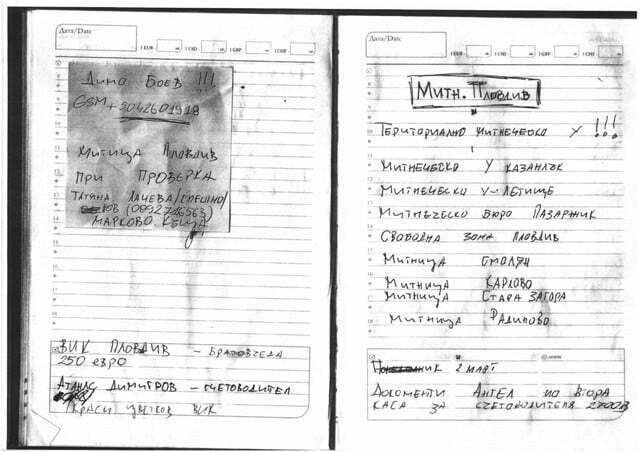 Дата/Date
1 EUR
1 USD
1 GBP
1 CHF
Дима Боев !!!
GSM+3042601918
Митница Пловдив
при проверка
Лачева/спешно/
(0892746563)
Марково къща
ВИК Пловдив - братовчеда
250 евро
Атанас Димитров - счетоводител
Краси Цветков ВИК
Дата/Date
1 EUR
1 USD
1 GBP
1 CHF
Митн. Пловдив
Териториално митническо у !!!
Митническо у Казанлък
Митническо у-Летище
Митническо бюро Пазарджик
Свободна зона Пловдив
Митница Смолян
Митница Карлово
Митница Стара Загора
Митница Радиново
2 март
Документи Ангел по втора
каса за счетоводителя 2700в